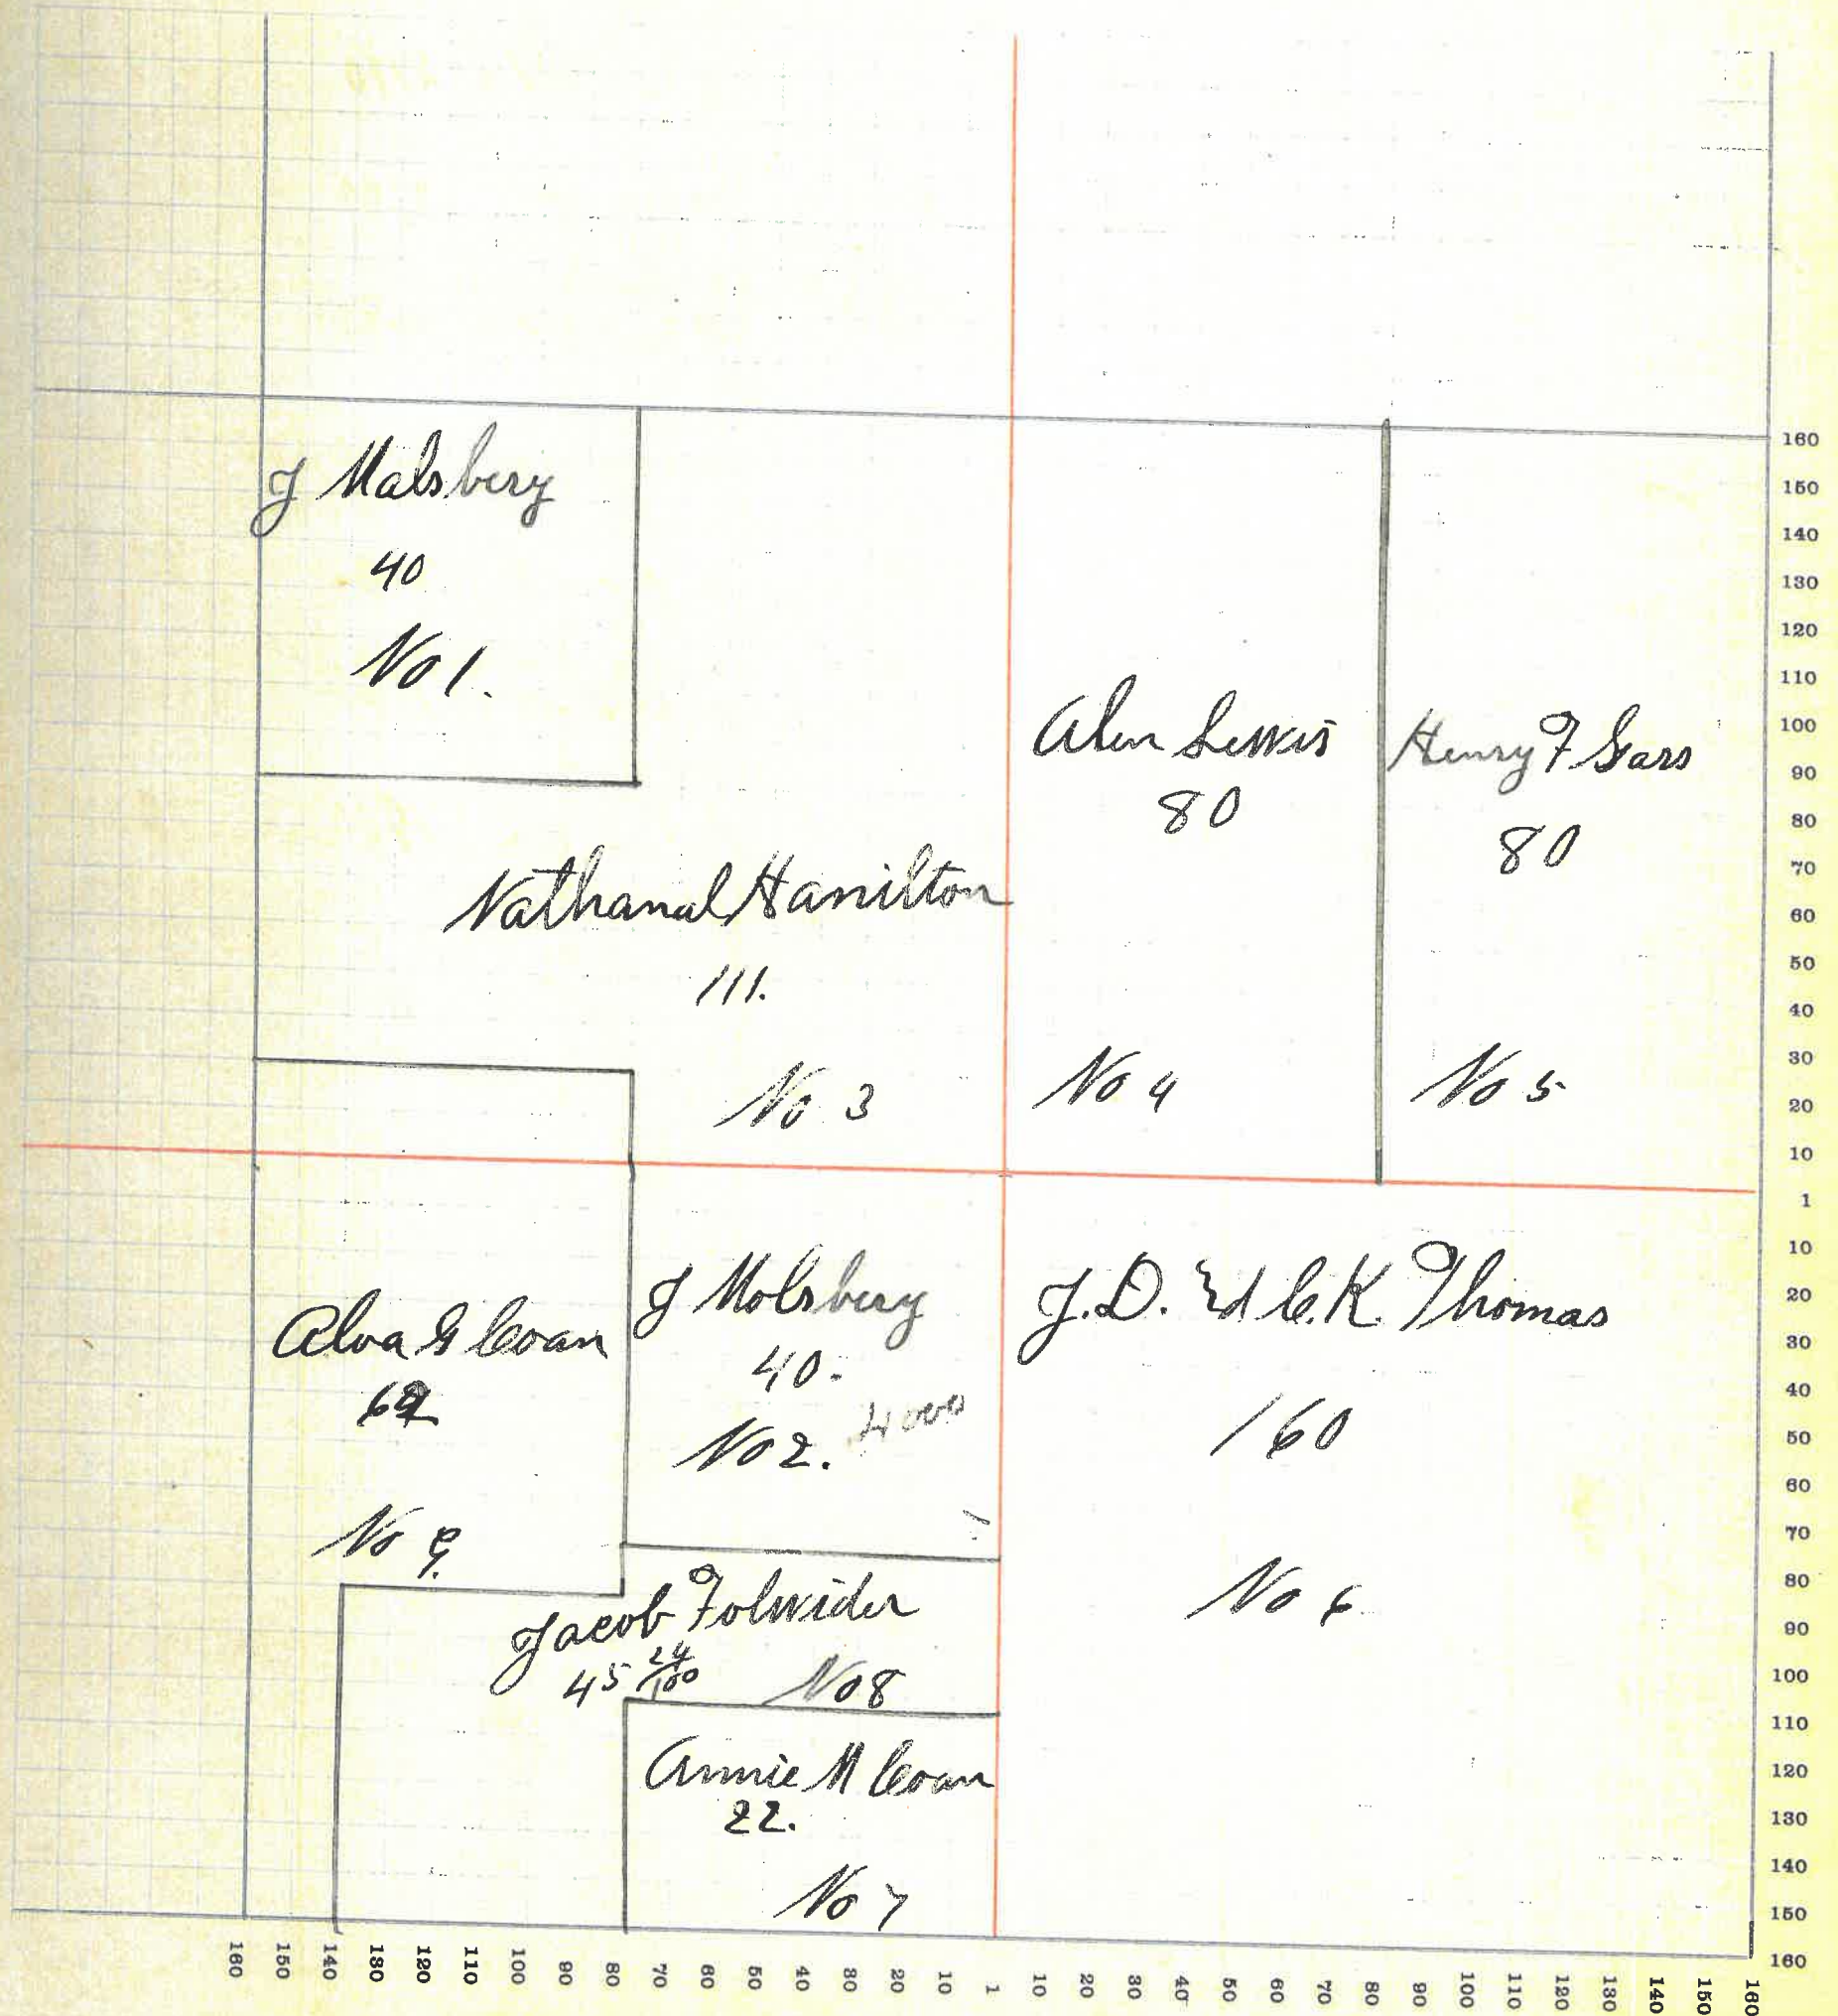 J Malsbery
40
No 1.
Nathanal Hamilton
111.
No 3
Alen Lewis
80
No 4
Henry F Gars
80
No 5
Alva G Coan
No 9.
J Molsbery
40.
4000
No 2.
J.D. Ed C.K. Thomas
160
No 6
Jacob Folwider
45 24/100
No 8
Annie M Coan
22.
No 7
160
150
140
130
120
110
100
90
80
70
60
50
40
30
20
10
1
10
20
30
40
50
60
70
80
90
100
110
120
130
140
150
160
160 150 140 130 120 110 100 90 80 70 60 50 40 30 20 10 1 10 20 30 40 50 60 70 80 90 100 110 120 130 140 150 160